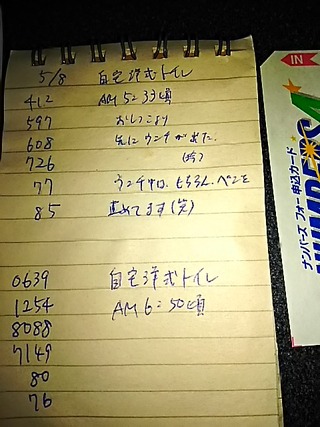 5/8 自宅洋式トイレ
412 AM 5:33頃
597 おしっこより
608 先にウンチが出た。
726 (笑)
77 ウンチ中は、もちろん、ペンを
85 止めてます(笑)
0639 自宅洋式トイレ
1254 AM 6:50頃
8088
7149
80
76
IN
ナンバーズ フォー 申込カード
NUMBERS